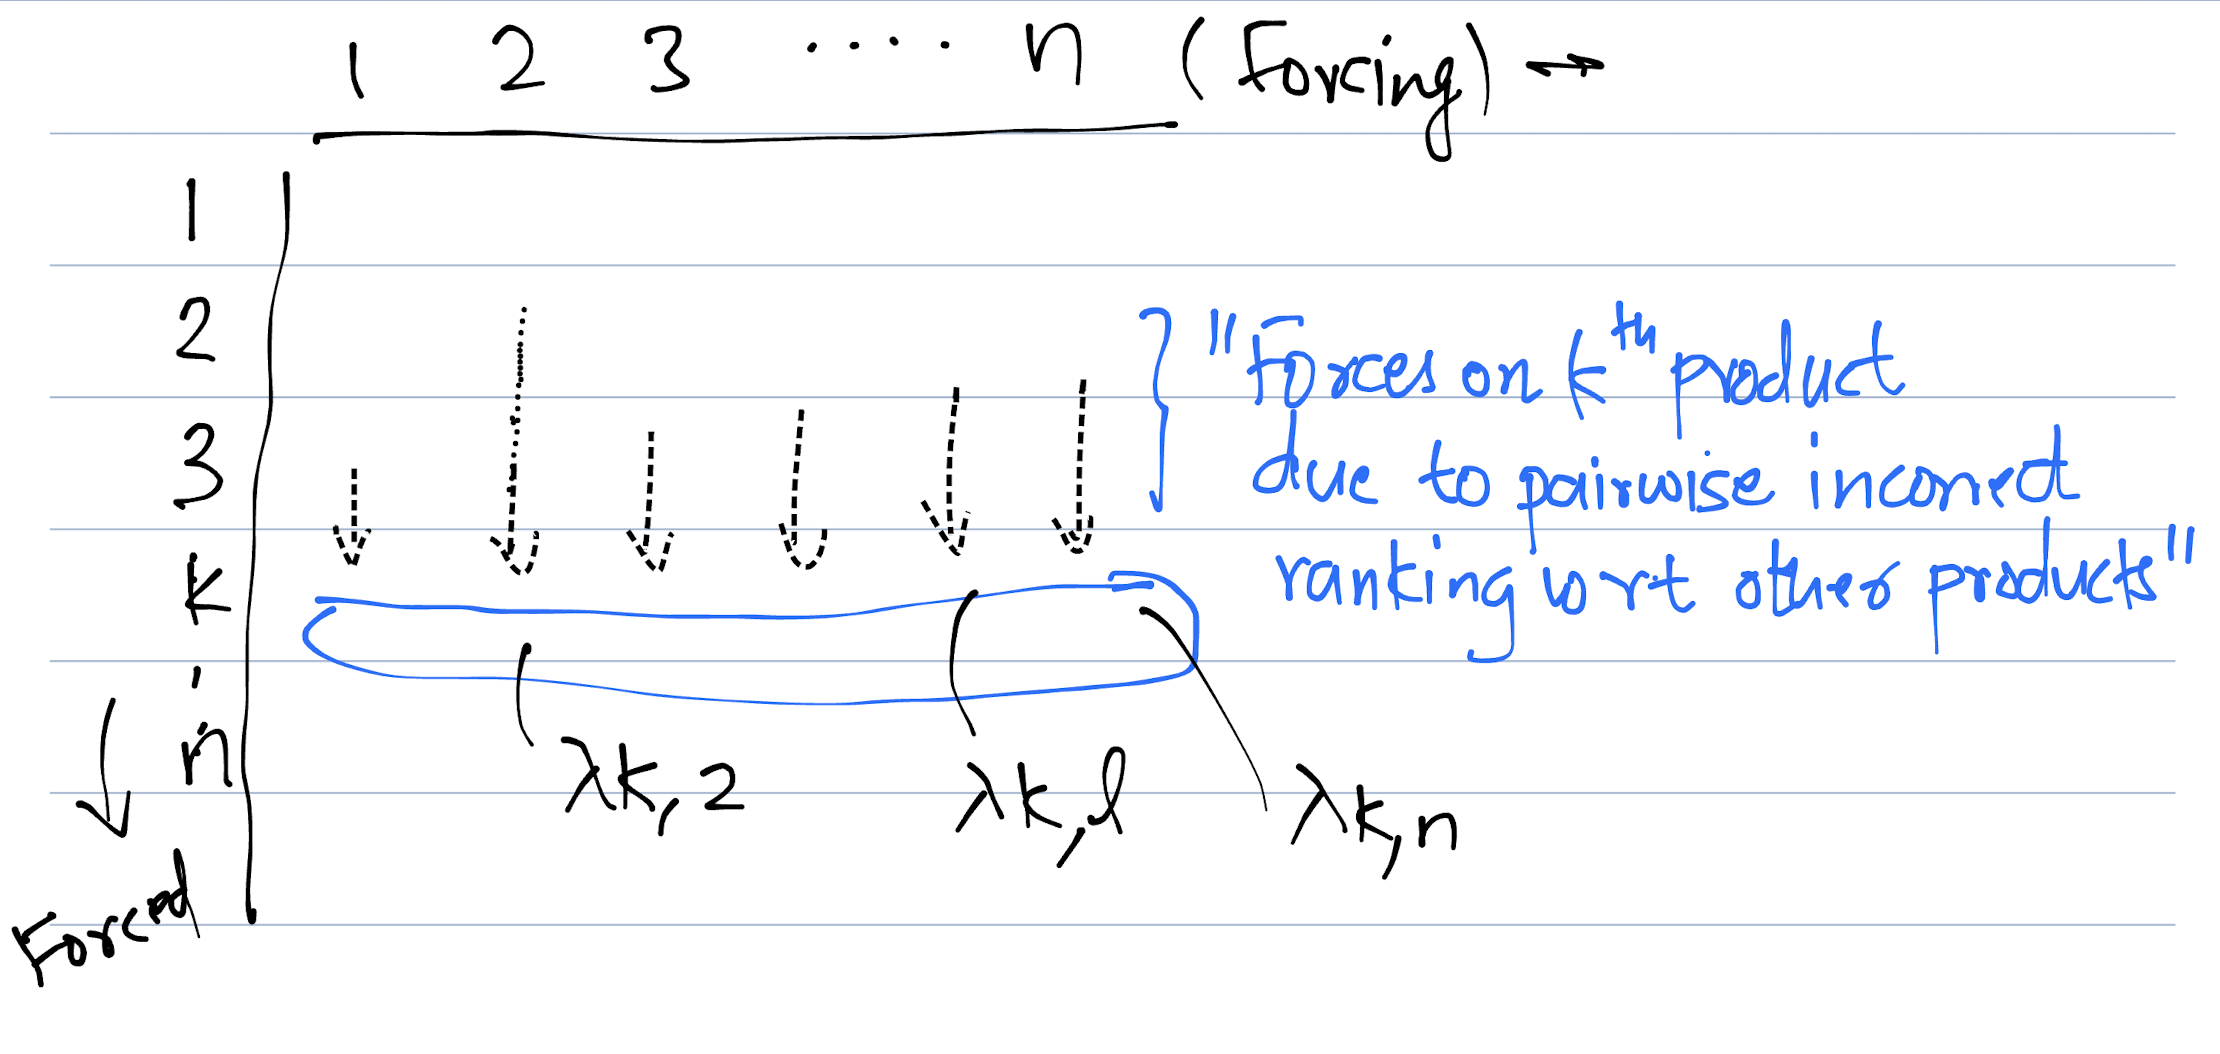 1 2 3 .... n (Forcing) →
1
2
3
k
.
n
Forced
"Forces on kth product
due to pairwise incorrect
ranking wrt other products"
λk,2
λk,l
λk,n